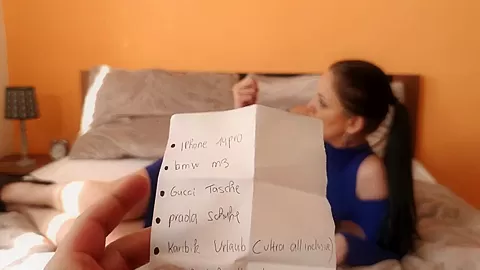 • iphone 14pro
• bmw m3
• Gucci Tasche
• prada Schuhe
• Karibik Urlaub (ultra all inclusive)